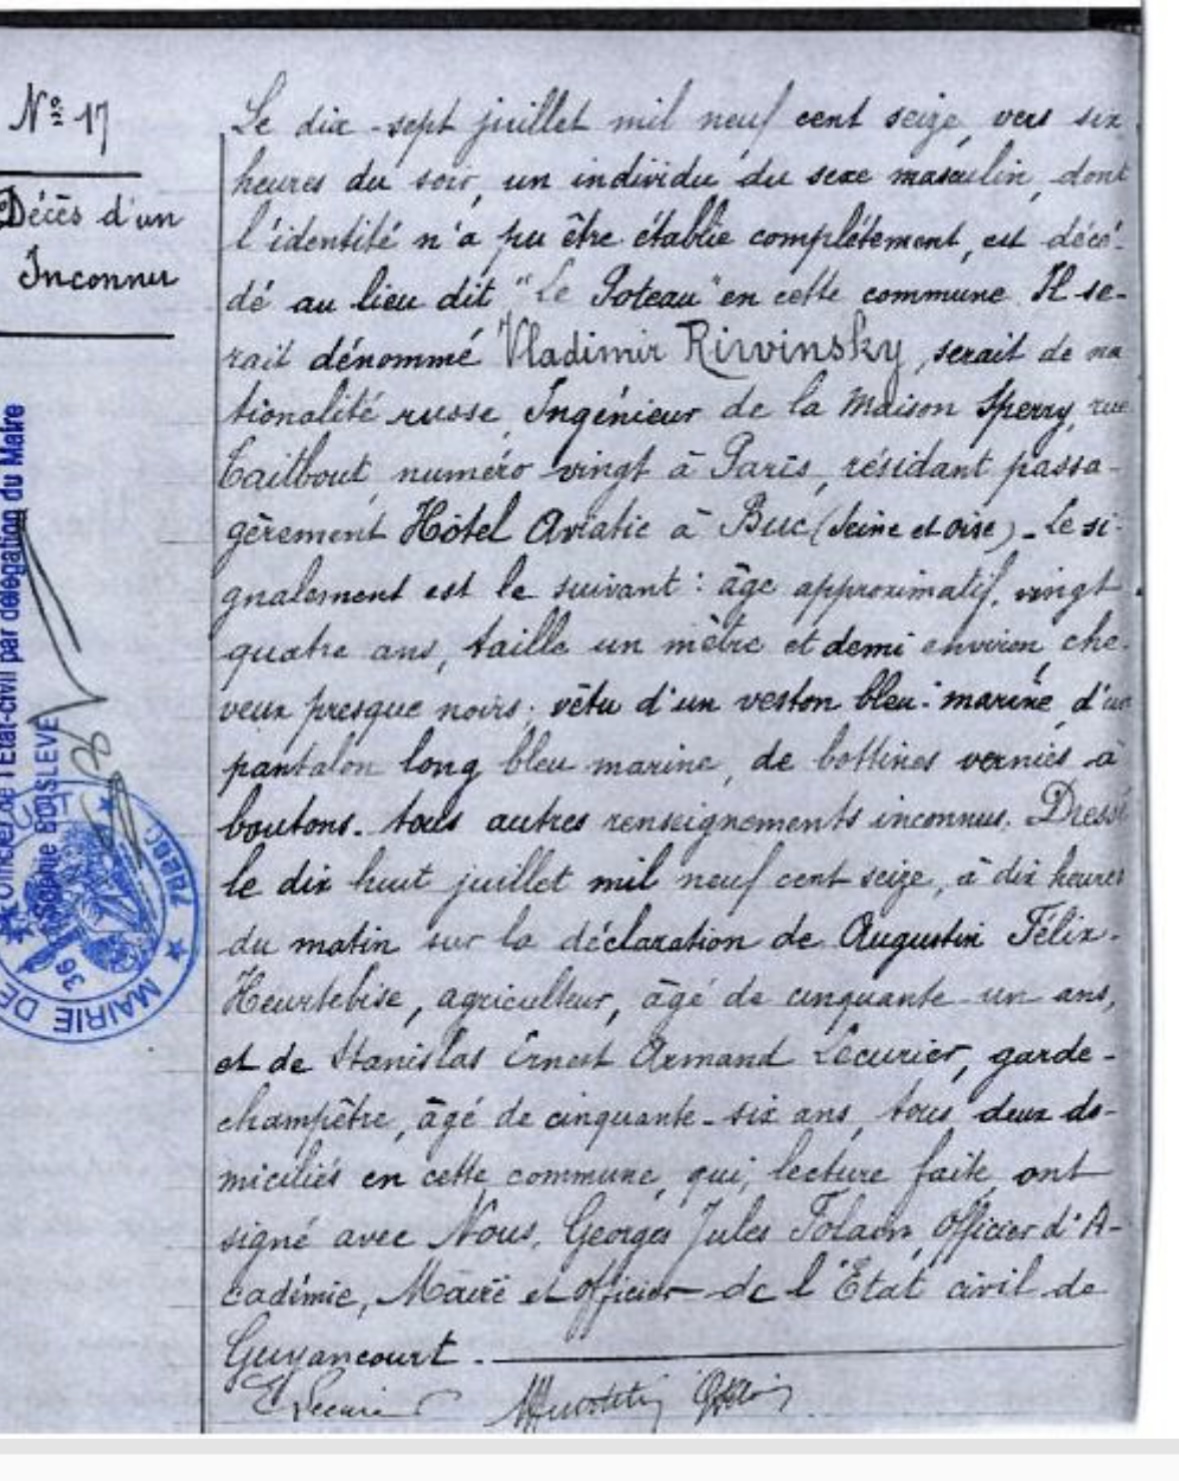 No 17
Décès d'un
Inconnu
Le dix-sept juillet mil neuf cent seize, vers six
heures du soir, un individu du sexe masculin, dont
l'identité n'a pu être établie complètement, est décé-
dé au lieu dit "Le Poteau" en cette commune. Il se-
rait dénommé Vladimir Rirvinsky, serait de na
tionalité russe, Ingénieur de la Maison Sperry, rue
Taitbout, numéro vingt à Paris, résidant passa-
gèrement Hôtel Aviatic à Buc (Seine et Oise). Le si-
gnalement est le suivant : âge approximatif, vingt
quatre ans, taille un mètre et demi environ, che-
veux presque noirs; vêtu d'un veston bleu-marine, d'un
pantalon long bleu marine, de bottines vernies à
boutons. tous autres renseignements inconnus. Dressé
le dix huit juillet mil neuf cent seize, à dix heures
du matin sur la déclaration de Augustin Félix
Heurtebise, agriculteur, âgé de cinquante-un ans,
et de Stanislas Ernest Armand Lécurier, garde-
champêtre, âgé de cinquante-six ans, tous deux do-
miciliés en cette commune, qui, lecture faite, ont
signé avec Nous, Georges Jules Officier d'A-
cadémie, Maire et officier de l'Etat civil de
Guyancourt.
Officier de l'Etat-civil par délégation du Maire
Sophie BOISLEVE
MAIRIE DE